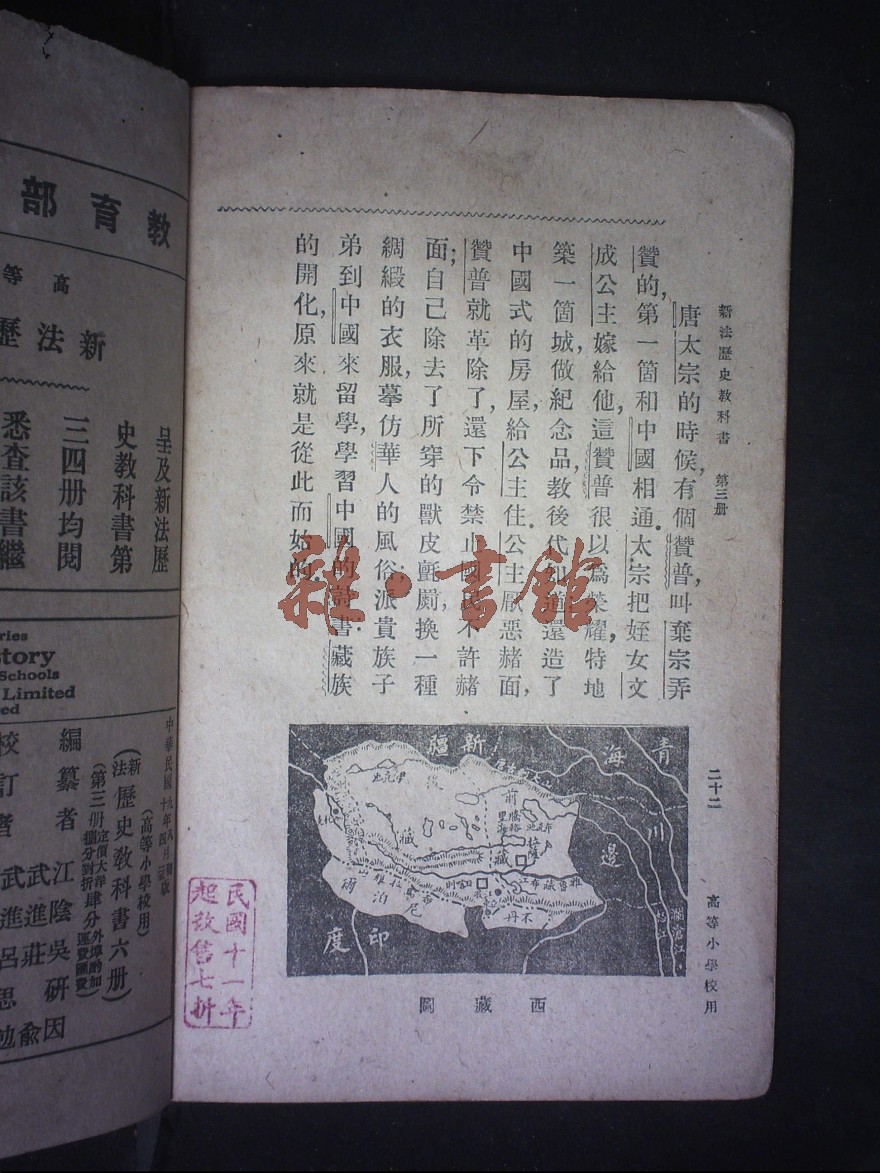 新法歷史教科書 第三册
二十二
高等小學校用
唐太宗的時候,有個贊普,叫棄宗弄
贊的,第一箇和中國相通.太宗把姪女文
成公主嫁給他,這贊普很以爲榮耀,特地
築一箇城,做紀念品,教後代知道還造了
中國式的房屋,給公主住.公主厭惡赭面,
贊普就革除了,還下令禁止國民不許赭
面;自己除去了所穿的獸皮氈罽,換一種
綢緞的衣服,摹仿華人的風俗;派貴族子
弟到中國來留學,學習中國的詩書.藏族
的開化,原來就是從此而始的.
雜·書館
青海
新疆
川邊
前藏
後藏
拉薩
江孜
雅魯藏布江
不丹
尼泊爾
印度
怒江
瀾滄江
西藏圖
教育部
高等
新法歷
呈及新法歷
史教科書第
三四册均閱
悉查該書繼
ries
story
Schools
Limited
ed
中華民國九年八月初版
(高等小學校用)
新法歷史教科書六册)
(第三册定價大洋肆分
編纂者
江陰吳研因
武進莊俞
校訂者
武進呂思勉
民國十一年
起改售七折